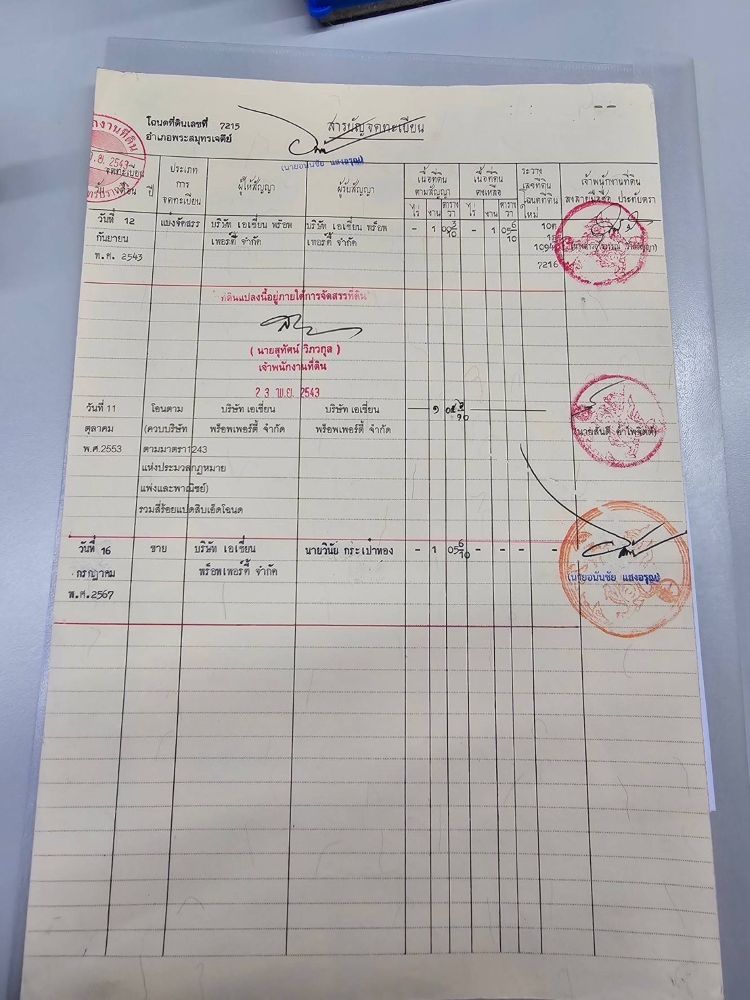 โฉนดที่ดินเลขที่ 7215
สารบัญจดทะเบียน
อำเภอพระสมุทรเจดีย์
(นายอนันชัย แสงอรุณ)
จดทะเบียน
วัน เดือน ปี
ประเภท
การ
จดทะเบียน
ผู้ให้สัญญา
ผู้รับสัญญา
เนื้อที่ดิน
ตามสัญญา
ไร่ งาน ตาราง
วา
เนื้อที่ดิน
คงเหลือ
ไร่ งาน ตาราง
วา
ระวาง
เลขที่ดิน
โฉนดที่ดิน
ใหม่
เจ้าพนักงานที่ดิน
ลงลายมือชื่อ ประทับตรา
วันที่ 12 แบ่งจัดสรร บริษัท เอเชี่ยน พร๊อพ บริษัท เอเชี่ยน พร๊อพ - 1 - 1 05 6/10
กันยายน เพอร์ตี้ จำกัด เพอร์ตี้ จำกัด
พ.ศ. 2543 7216
"ที่ดินแปลงนี้อยู่ภายใต้การจัดสรรที่ดิน"
( นายสุทัศน์ วิภวกุล )
เจ้าพนักงานที่ดิน
23 พ.ย. 2543
วันที่ 11 โอนตาม บริษัท เอเชี่ยน บริษัท เอเชี่ยน
ตุลาคม (ควบบริษัท พร๊อพเพอร์ตี้ จำกัด พร๊อพเพอร์ตี้ จำกัด
พ.ศ.2553 ตามมาตรา1243
แห่งประมวลกฎหมาย
แพ่งและพาณิชย์)
รวมสี่ร้อยแปดสิบเอ็ดโฉนด
วันที่ 16 ขาย บริษัท เอเชี่ยน นายวินัย กระเป๋าทอง - 1 05 6/10 - - - -
กรกฎาคม พร็อพเพอร์ตี้ จำกัด
พ.ศ.2567
(นายอนันชัย แสงอรุณ)